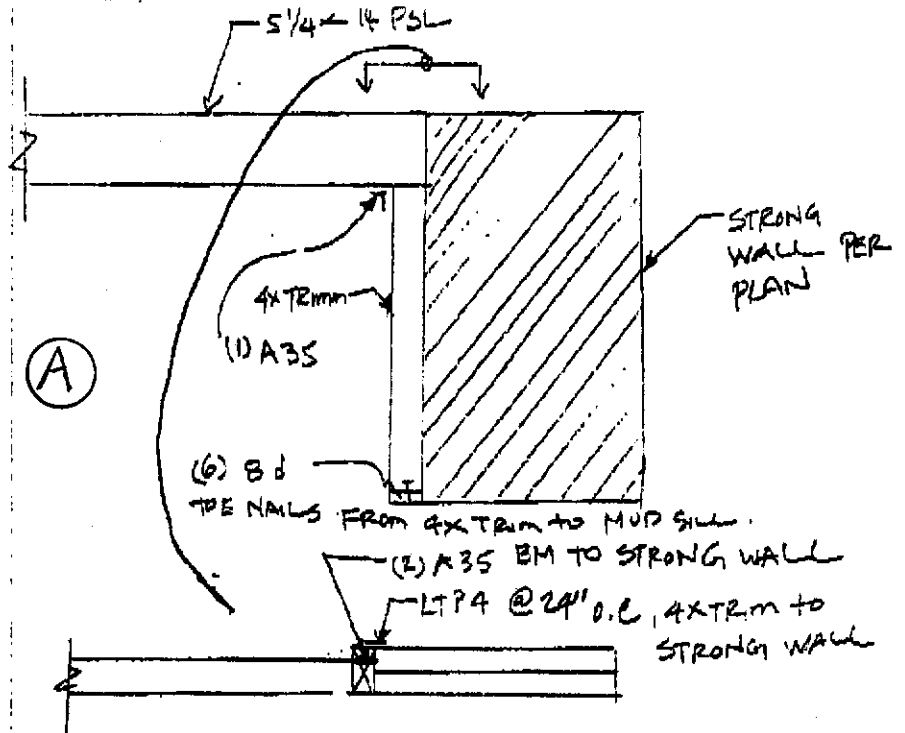 5 1/4 x 14 PSL
STRONG
WALL PER
PLAN
4x TRIMM
(1) A35
A
(6) 8d
TOE NAILS FROM 4x TRIM TO MUD SILL.
(2) A35 BM TO STRONG WALL
LTP4 @ 24" O.C, 4x TRIM TO
STRONG WALL